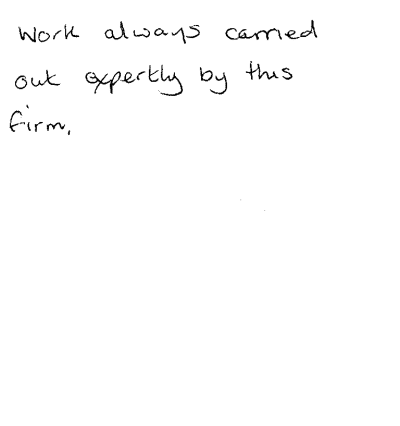 Work always carried
out expertly by this
firm.